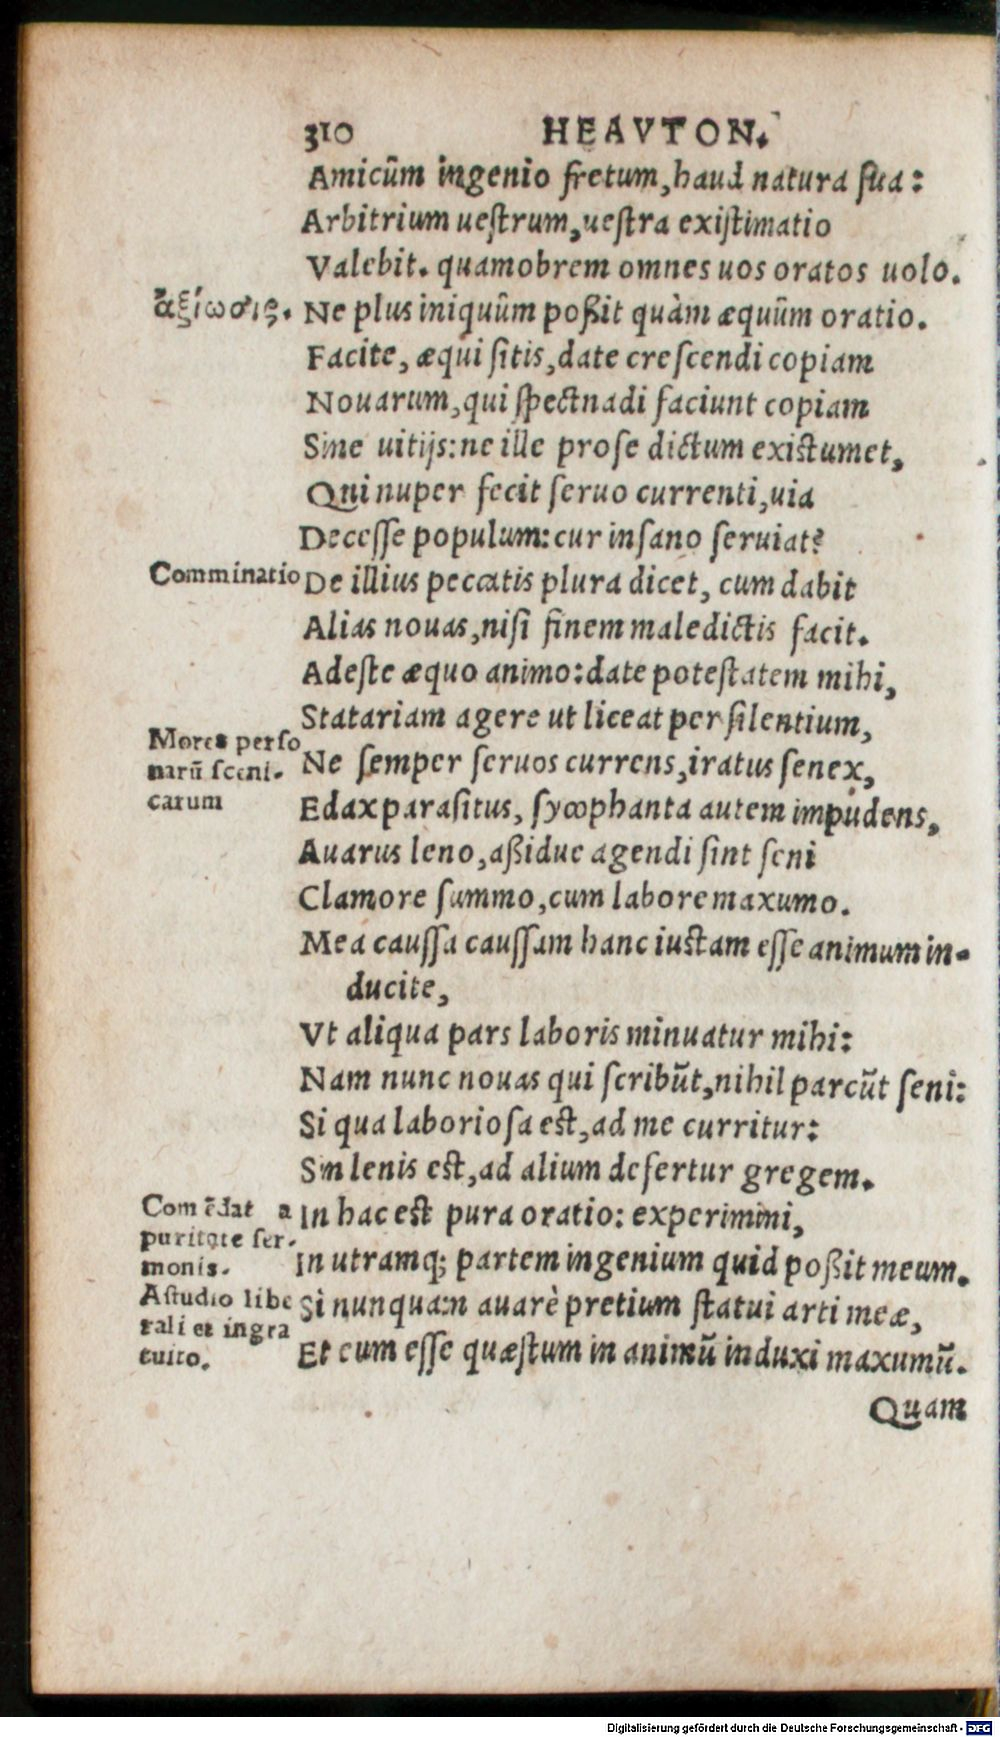 310 HEAVTON.
Amicũm ingenio fretum, haud natura sua:
Arbitrium uestrum, uestra existimatio
Valebit. quamobrem omnes uos oratos uolo.
ἀξίωσις.
Ne plus iniquûm poßit quàm æquûm oratio.
Facite, æqui sitis, date crescendi copiam
Nouarum, qui spectnadi faciunt copiam
Sine uitijs: ne ille prose dictum existumet,
Qui nuper fecit seruo currenti, uia
Decesse populum: cur insano seruiat?
Comminatio
De illius peccatis plura dicet, cum dabit
Alias nouas, nisi finem maledictis facit.
Adeste æquo animo: date potestatem mihi,
Statariam agere ut liceat per silentium,
Mores perso
narũ sceni-
carum
Ne semper seruos currens, iratus senex,
Edax parasitus, sycophanta autem impudens,
Auarus leno, aßidue agendi sint seni
Clamore summo, cum labore maxumo.
Mea caussa caussam hanc iustam esse animum in-
ducite,
Vt aliqua pars laboris minuatur mihi:
Nam nunc nouas qui scribũt, nihil parcũt seni:
Si qua laboriosa est, ad me curritur:
Sin lenis est, ad alium defertur gregem.
Com ẽdat a
puritate ser-
monis.
In hac est pura oratio: experimini,
In utramq; partem ingenium quid poßit meum.
A studio libe
rali et ingra
tuito.
Si nunquam auarè pretium statui arti meæ,
Et eum esse quæstum in animũ induxi maxumũ.
Quam
Digitalisierung gefördert durch die Deutsche Forschungsgemeinschaft - DFG